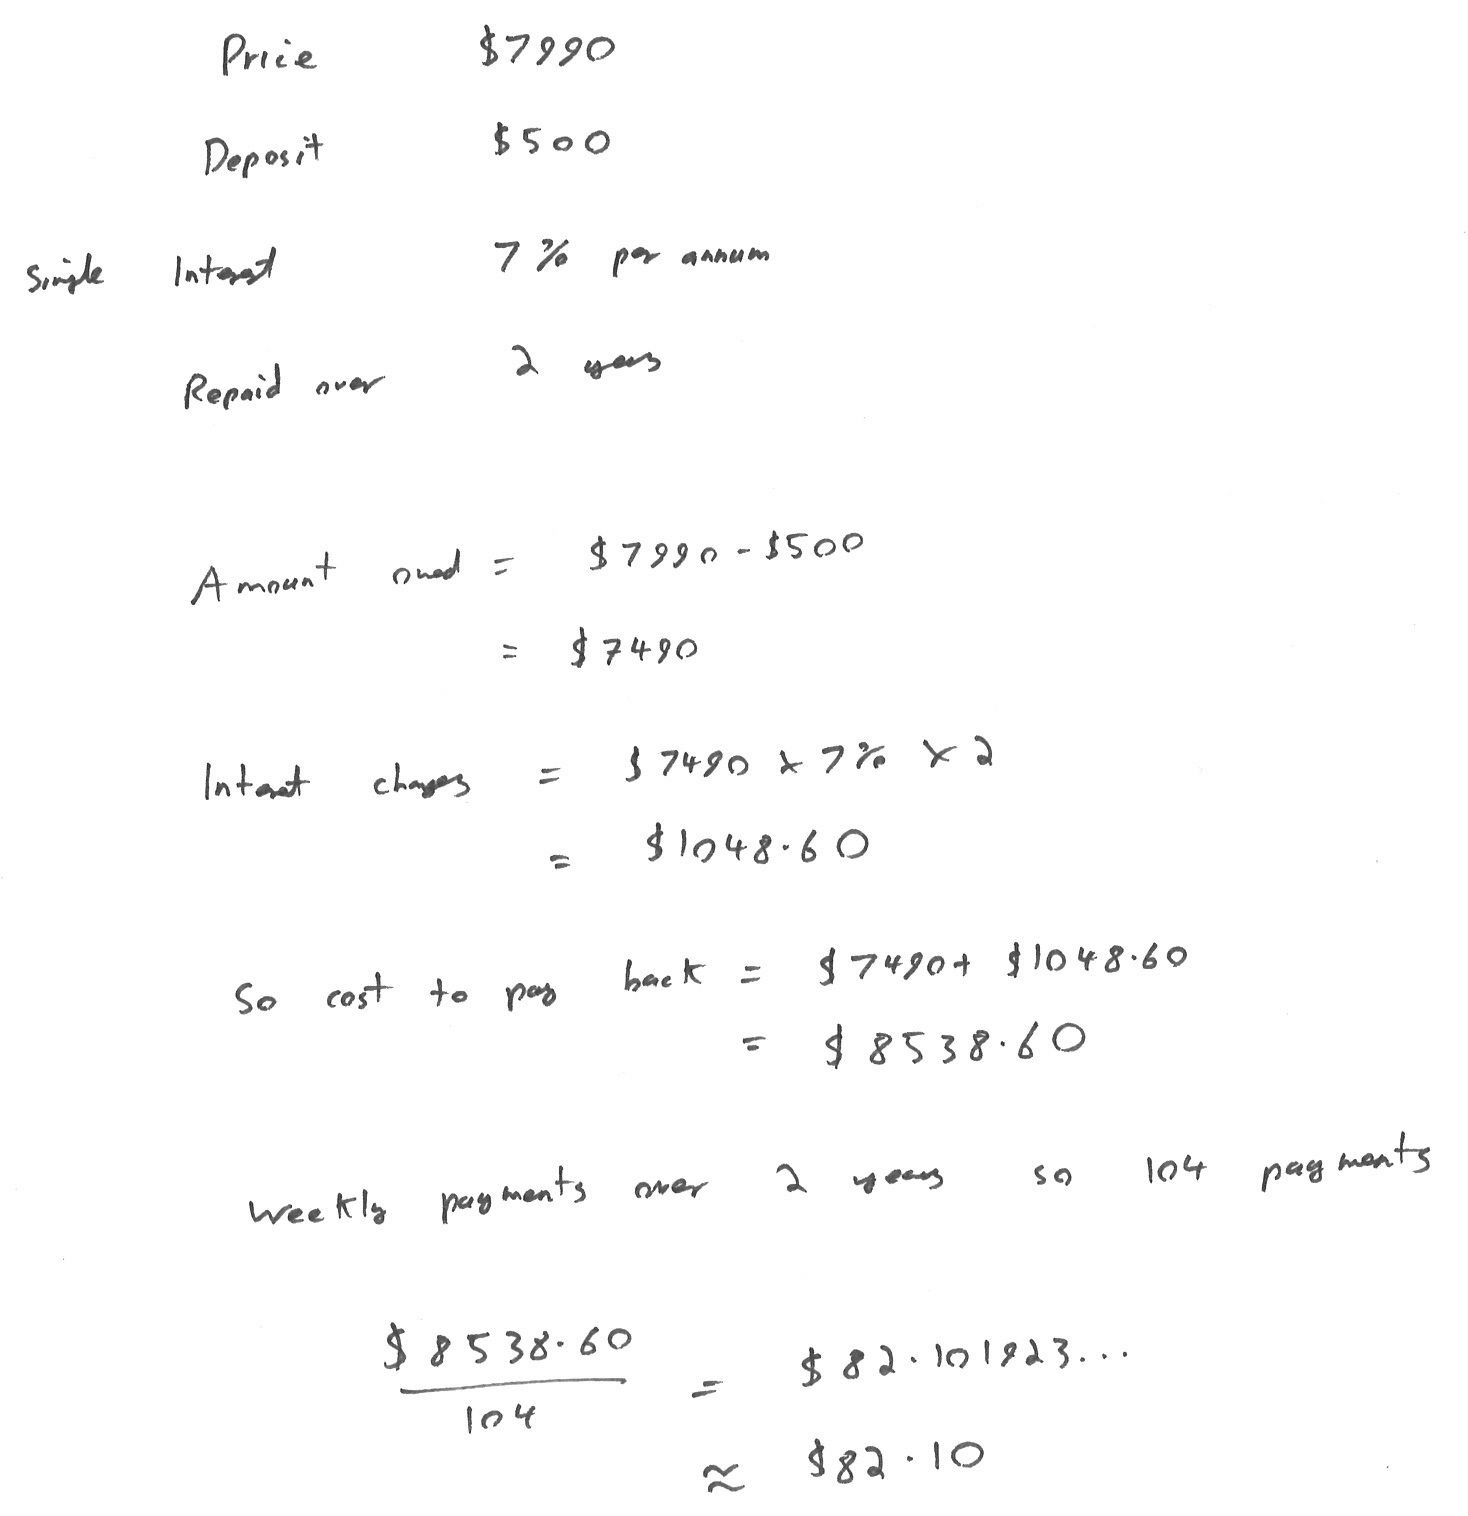 Price $7990
Deposit $500
Simple Interest 7% per annum
Repaid over 2 years
Amount owed = $7990 - $500
= $7490
Interest charges = $7490 × 7% × 2
= $1048.60
So cost to pay back = $7490 + $1048.60
= $8538.60
Weekly payments over 2 years so 104 payments
$8538.60
104
= $82.101923...
≈ $82.10